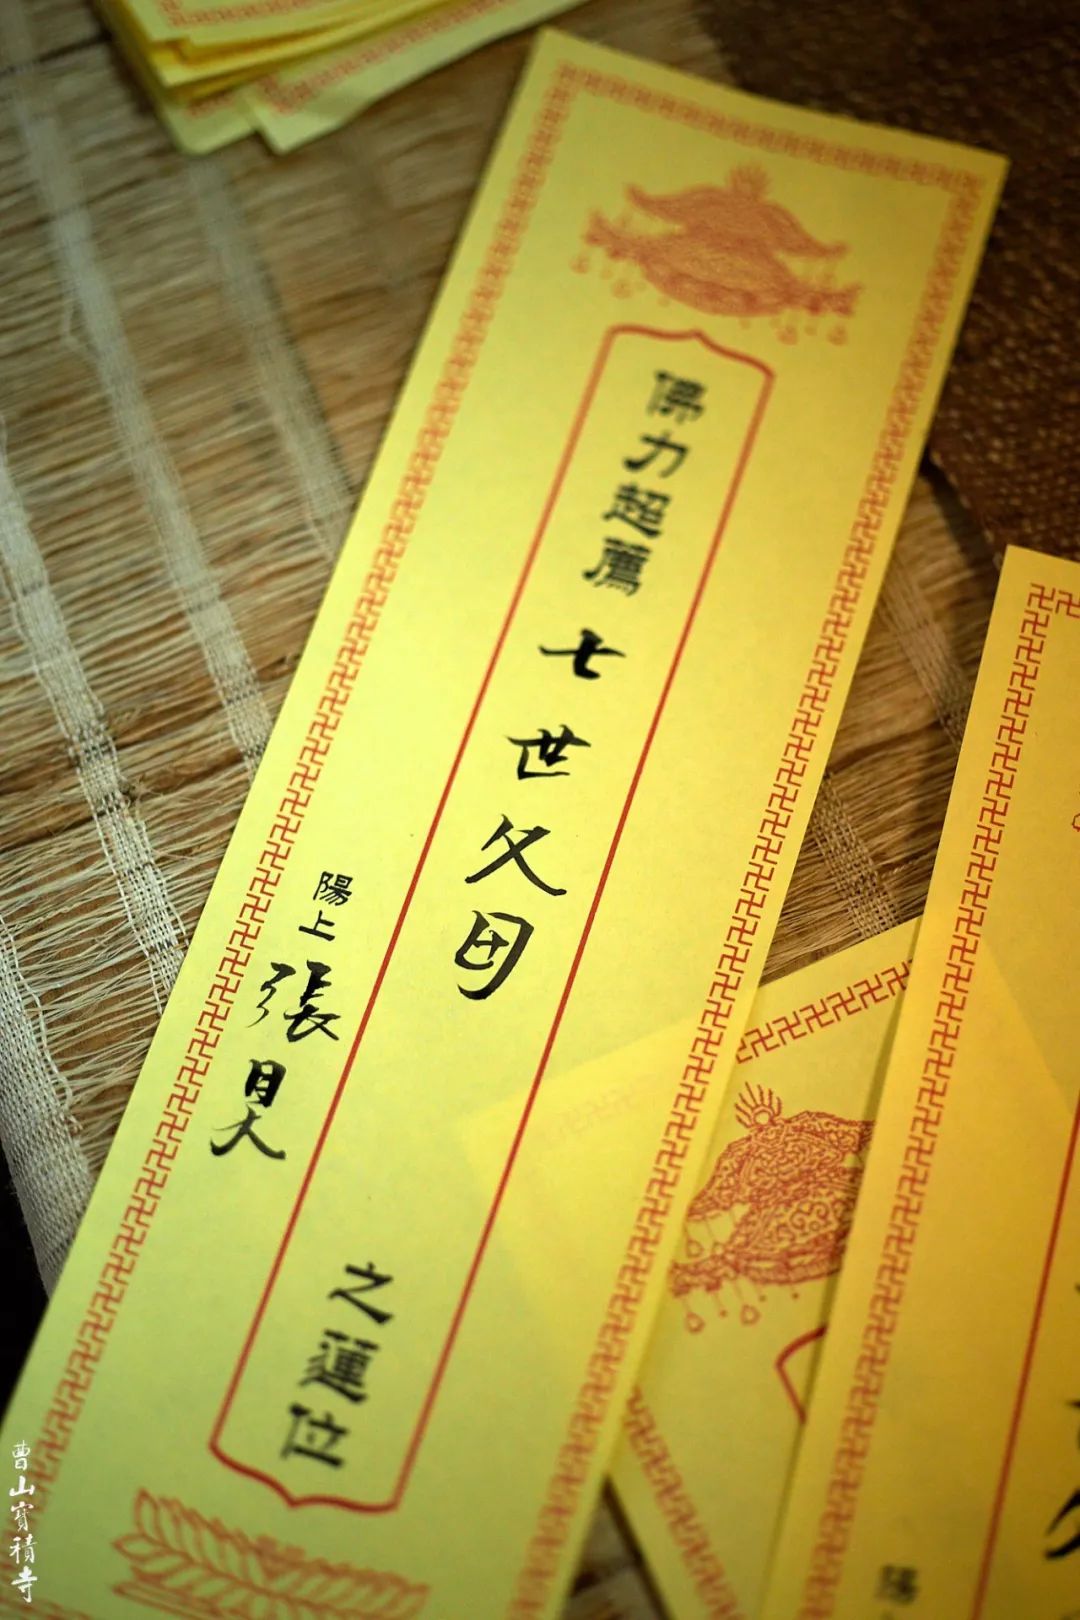 佛力超薦七世父母之蓮位
陽上張昊
陽
曹山寶積寺